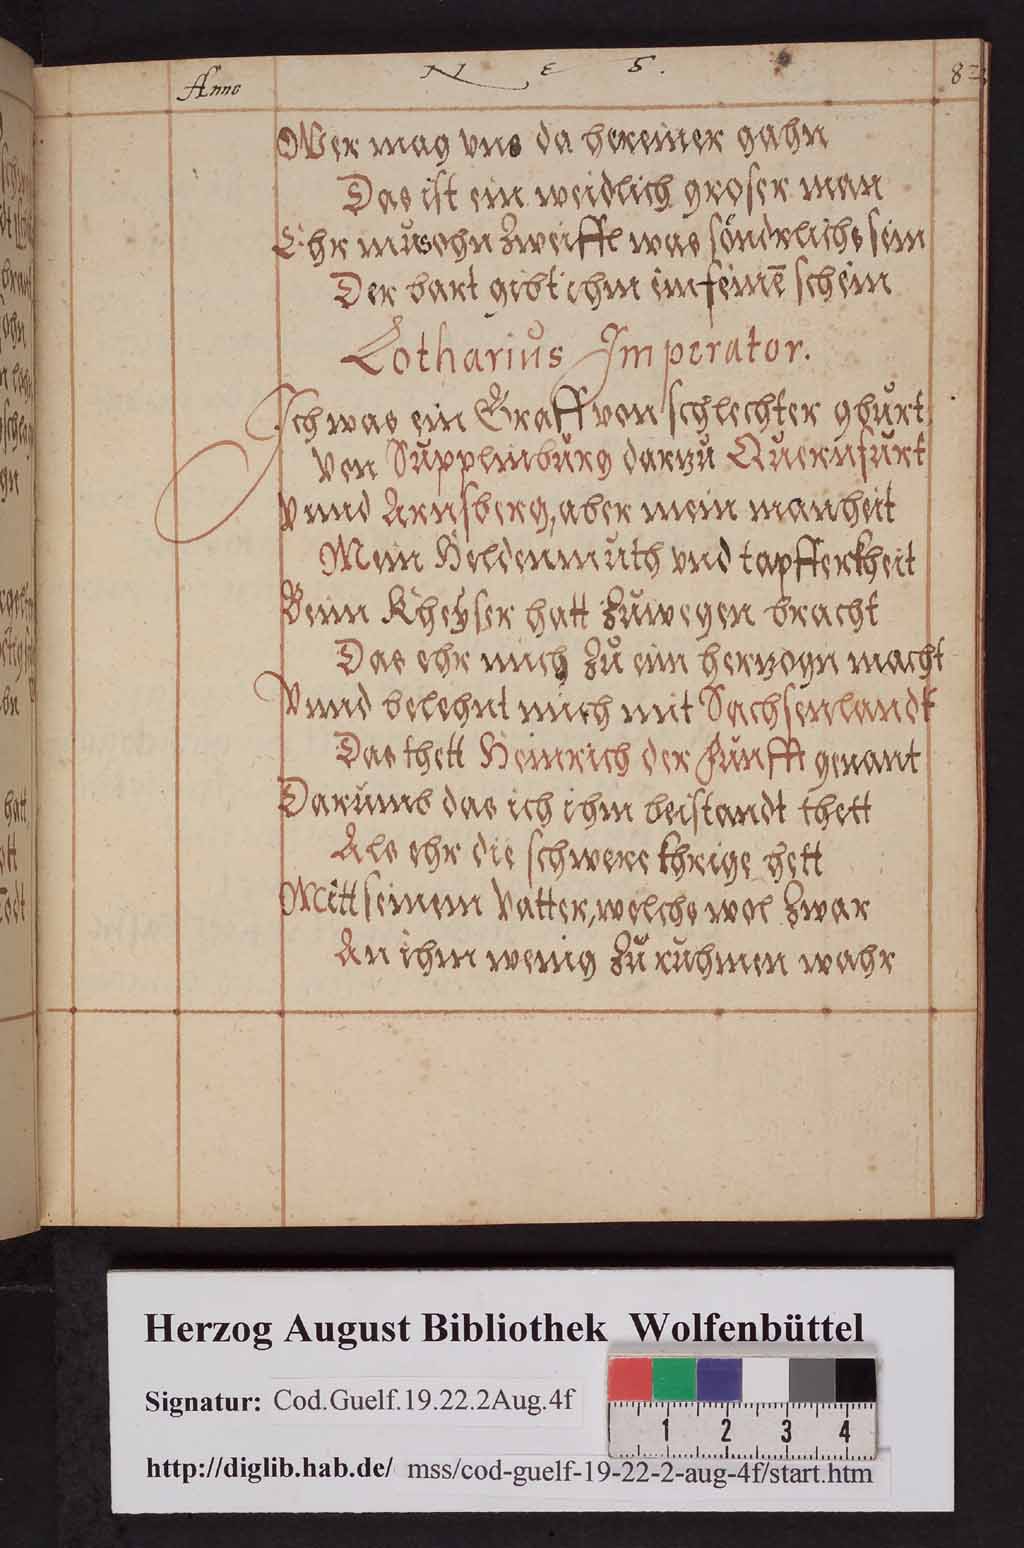 Anno N E S. 82
Wer mag vns da hereiner gahn
Das ist ein weidlich groser man
Ehr mus ohn zweiffl was sönderlichs sein
Der bart gibt ihm ein feinē schein
Lotharius Imperator.
Ich was ein Graff von schlechter gburt
Von Supplinburg darzu Quernfurt
Vnnd Arnsberg, aber mein manheit
Mein Heldenmuth vnd tapfferkheit
Beim Kheyser hatt zuwegen bracht
Das ehr mich zu ein herzogn macht
Vnnd belehnt mich mit Sachsenlandt
Das thett Heinrich der Funfft genant
Darumb das ich ihm beistandt thett
Als ehr die schwere khrige hett
Mitt seinem Vatter, welchs wol zwar
An ihm wenig zu ruhmen wahr
Herzog August Bibliothek Wolfenbüttel
Signatur: Cod.Guelf.19.22.2Aug.4f
1 2 3 4
http://diglib.hab.de/ mss/cod-guelf-19-22-2-aug-4f/start.htm